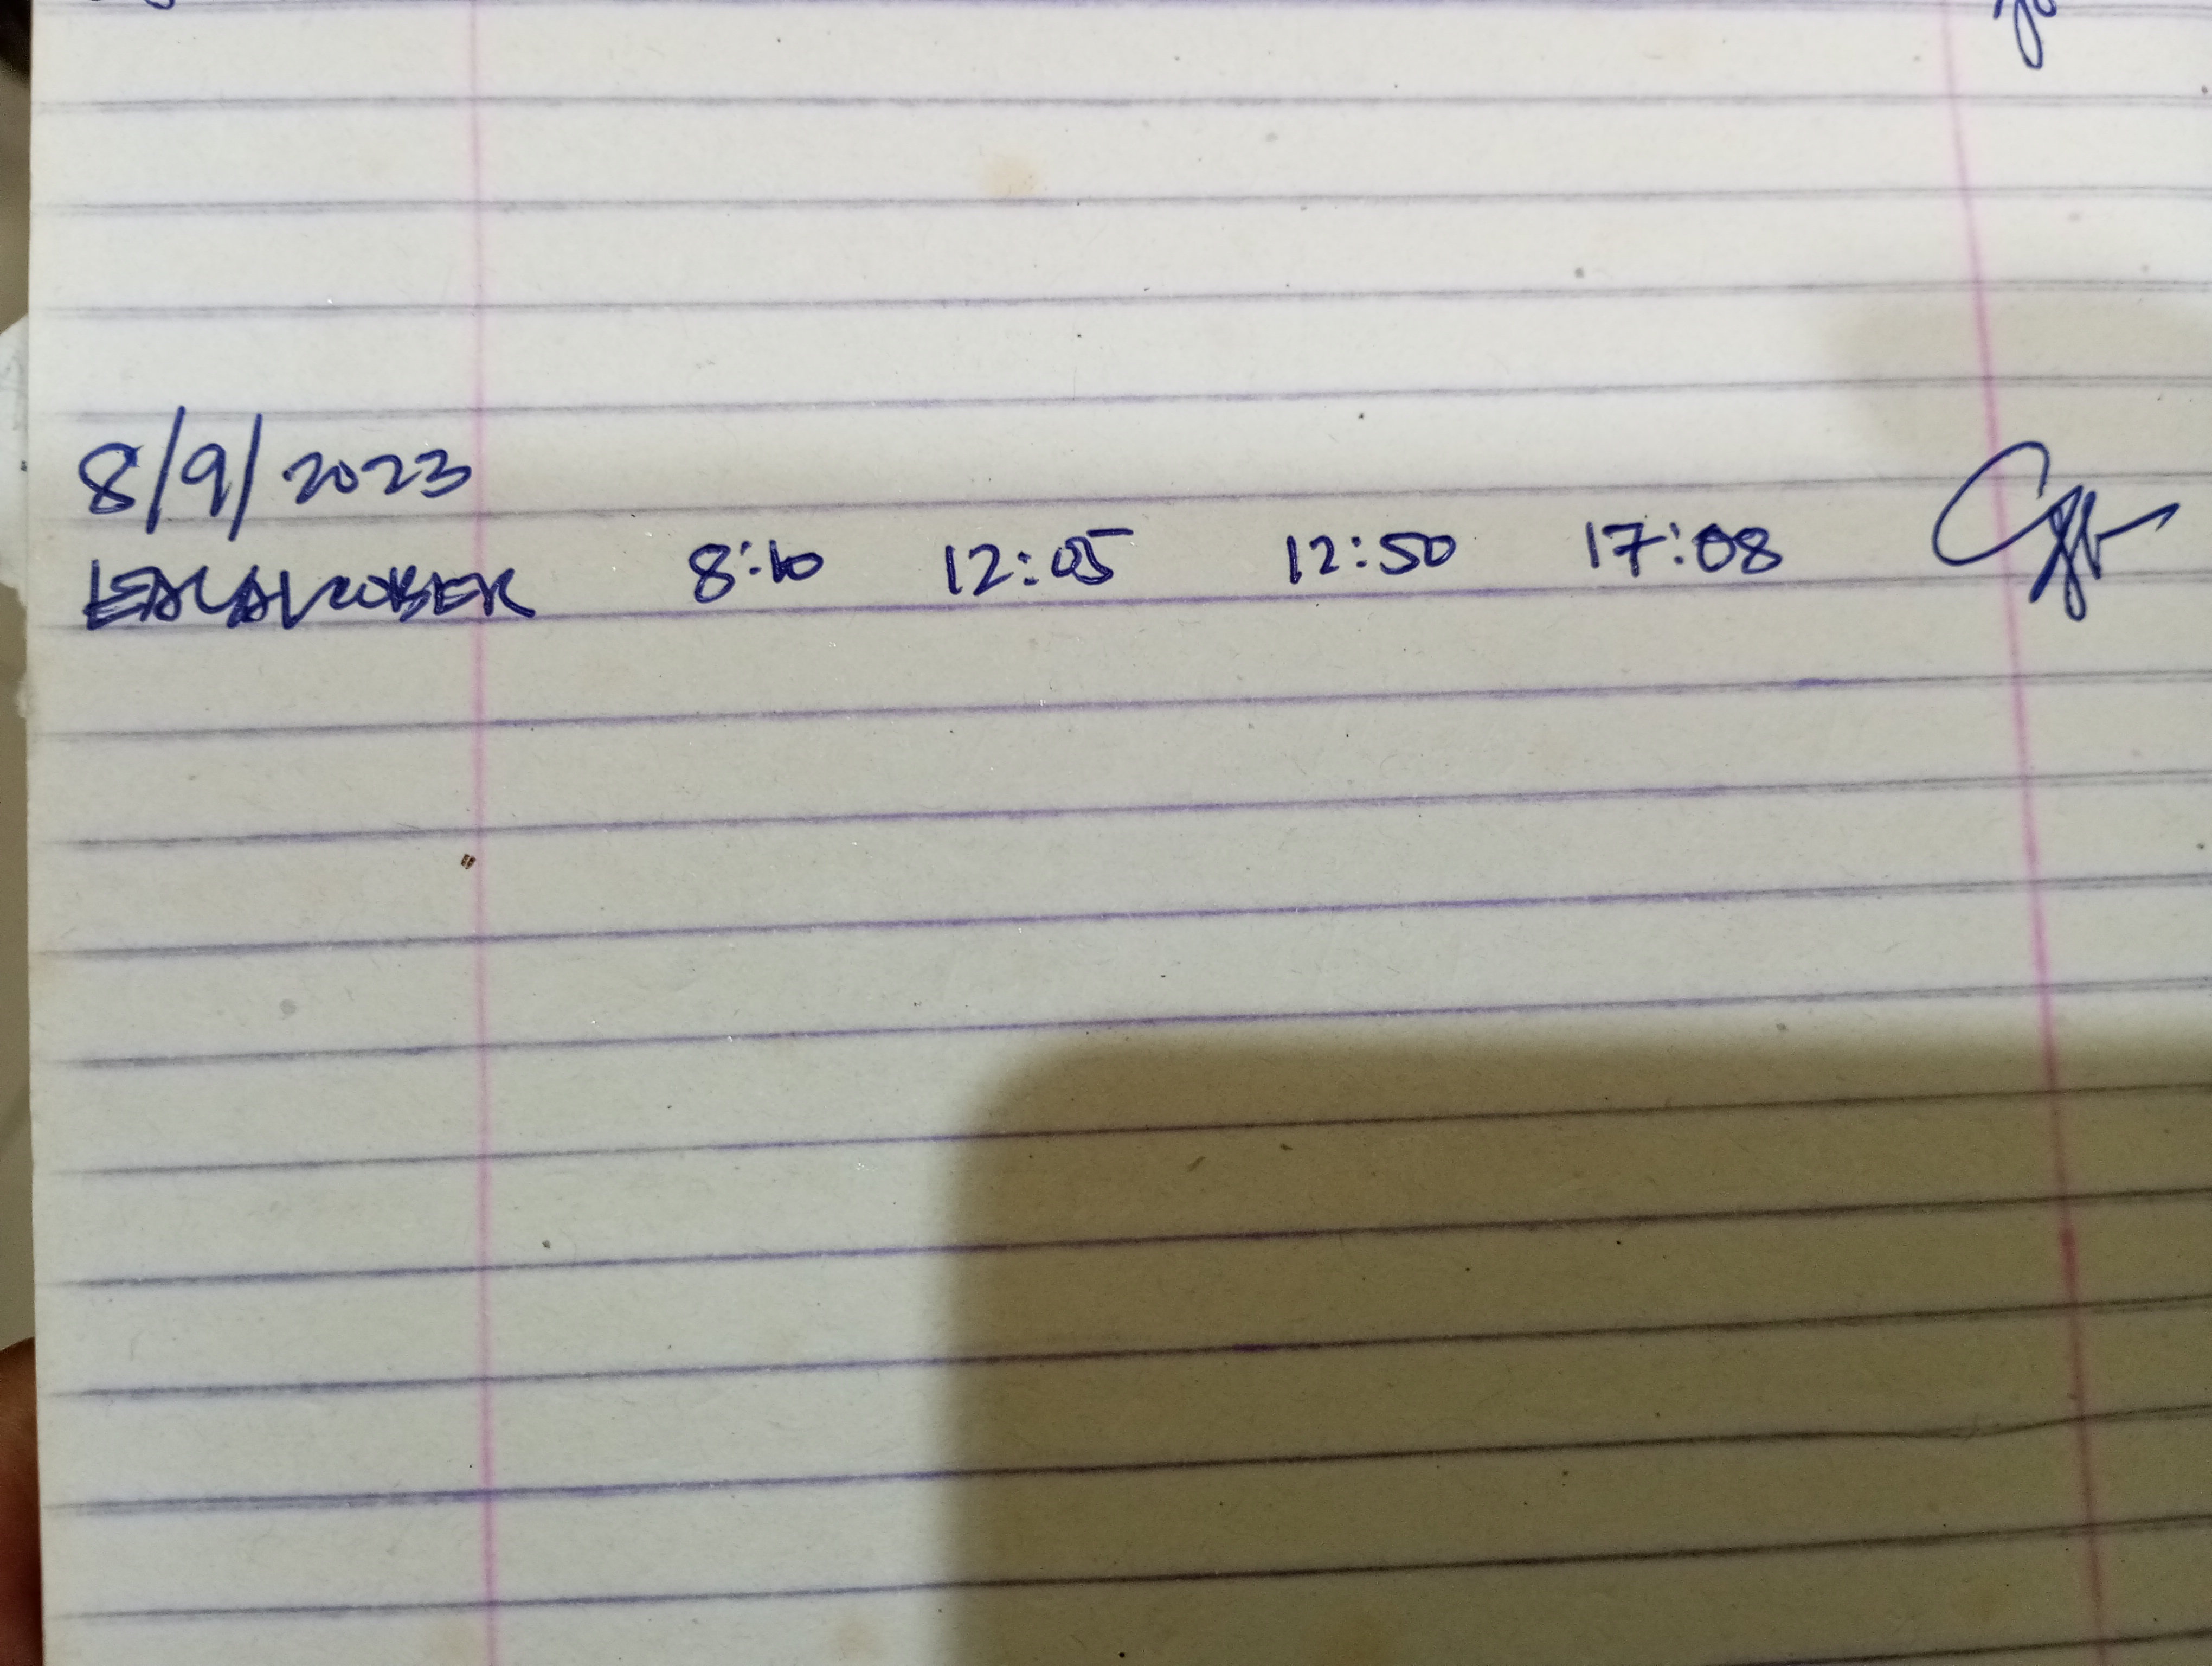 8/9/2023
8:10 12:05 12:50 17:08